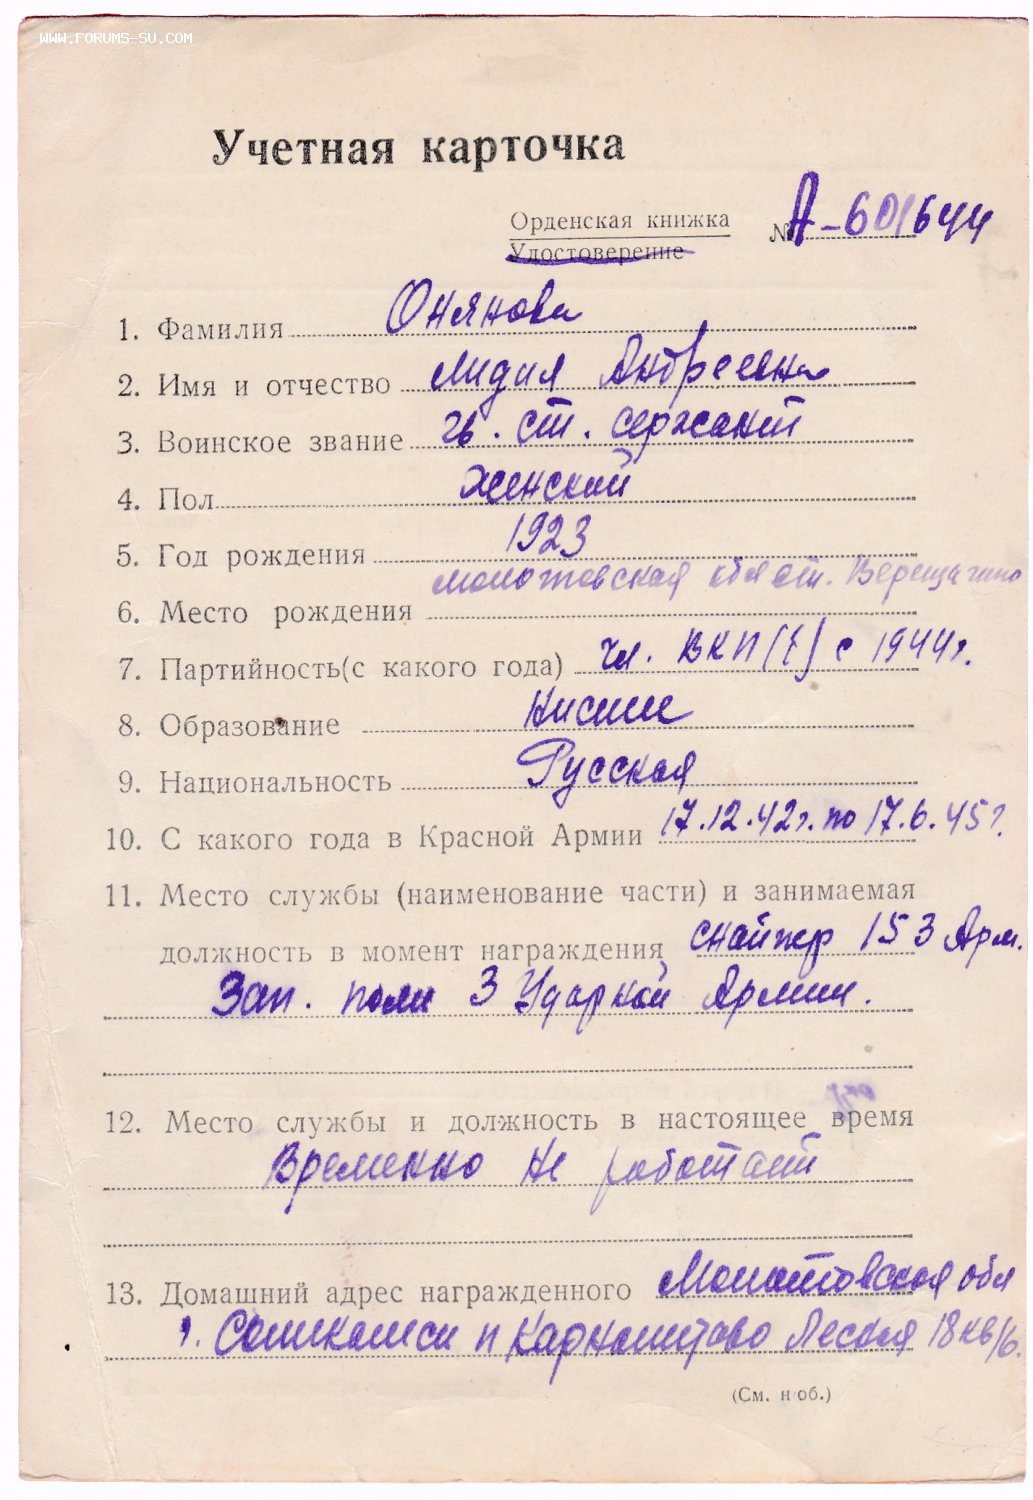 WWW.FORUMS-SU.COM
Учетная карточка
Орденская книжка № А-601644
Удостоверение
1. Фамилия Онянова
2. Имя и отчество Лидия Андреевна
3. Воинское звание гв. ст. сержант
4. Пол женский
5. Год рождения 1923
6. Место рождения Молотовская област. Верещагино
7. Партийность(с какого года) чл. ВКП(б) с 1944г.
8. Образование Низшее
9. Национальность Русская
10. С какого года в Красной Армии 17.12.42г. по 17.6.45г.
11. Место службы (наименование части) и занимаемая
должность в момент награждения снайпер 153 Арм.
Зап. полк 3 Ударной Армии.
12. Место службы и должность в настоящее время
Временно не работает
13. Домашний адрес награжденного Молотовская обл
г. Соликамск п Лесная 18 кв/6.
(См. н об.)